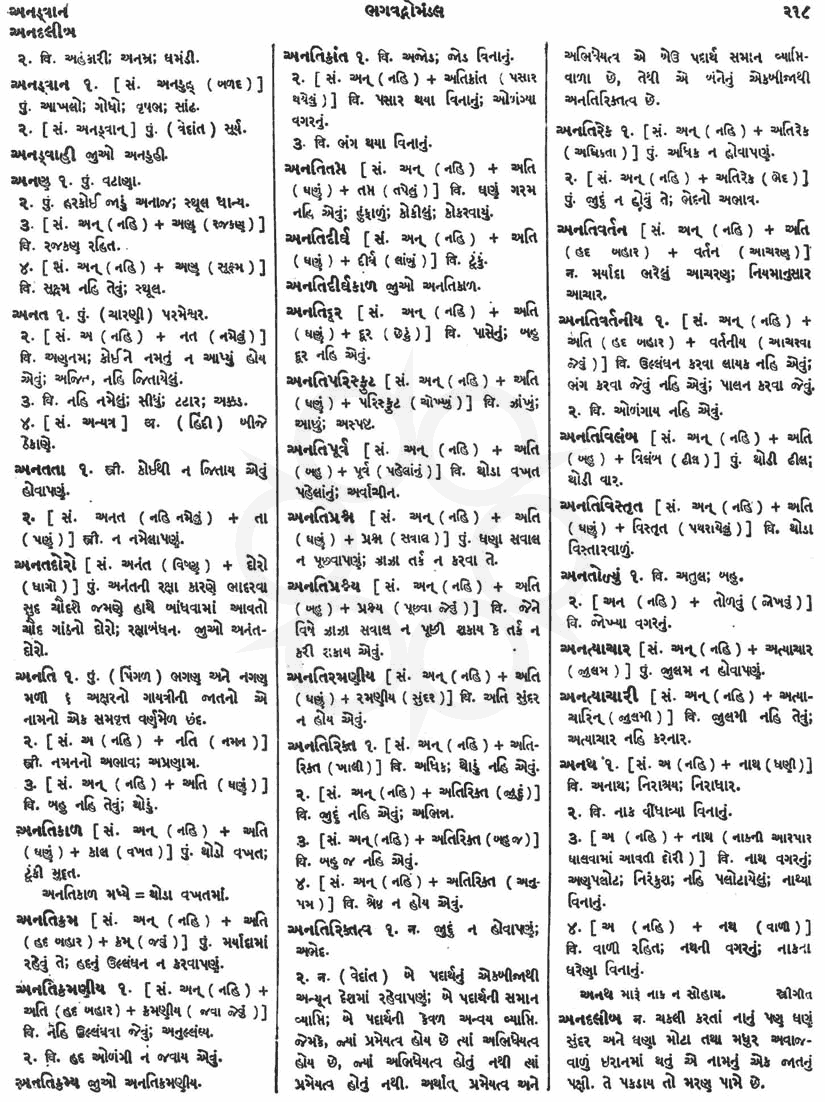 અનડ્વાન
અનદલીબ
ભગવદ્ગોમંડલ
૨૧૮
૨. વિ. અહંકારી; અનમ્ર; ઘમંડી.
અનડ્વાન ૧. [ સં. અનડુહ્ ( બળદ ) ]
પું. આખલો; ગોધો; વૃષભ; સાંઢ.
૨. [ સં. અનડ્વાન્ ] પું. ( વેદાંત ) સૂર્ય.
અનડ્વાહી જુઓ અનડુહી.
અનણુ ૧. પું. વટાણા.
૨. પું. હરકોઈ જાડું અનાજ; સ્થૂલ ધાન્ય.
૩. [ સં. અન્ ( નહિ ) + અણુ ( રજકણ ) ]
વિ. રજકણ રહિત.
૪. [ સં. અન્ ( નહિ ) + અણુ ( સૂક્ષ્મ ) ]
વિ. સૂક્ષ્મ નહિ તેવું; સ્થૂલ.
અનત ૧. પું. ( ચારણી ) પરમેશ્વર.
૨. [ સં. અ ( નહિ ) + નત ( નમેલું ) ]
વિ. અણનમ; કોઈને નમતું ન આપ્યું હોય
એવું; અજિત, નહિ જિતાયેલું.
૩. વિ. નહિ નમેલું; સીધું; ટટાર; અક્કડ.
૪. [ સં. અન્યત્ર ] અ. ( હિંદી ) બીજે
ઠેકાણે.
અનતતા ૧. સ્ત્રી. કોઈથી ન જિતાય એવું
હોવાપણું.
૨. [ સં. અનત ( નહિ નમેલું ) + તા
( પણું ) ] સ્ત્રી. ન નમેલાપણું.
અનતદોરો [ સં. અનંત ( વિષ્ણુ ) + દોરો
( ધાગો ) ] પું. અનંતની રક્ષા કારણે ભાદરવા
સુદ ચૌદશે જમણે હાથે બાંધવામાં આવતો
ચૌદ ગાંઠનો દોરો; રક્ષાબંધન. જુઓ અનંત-
દોરો.
અનતિ ૧. પું. ( પિંગળ ) ભગણ અને નગણ
મળી ૬ અક્ષરનો ગાયત્રીની જાતનો એ
નામનો એક સમવૃત્ત વર્ણમેળ છંદ.
૨. [ સં. અ ( નહિ ) + નતિ ( નમન ) ]
સ્ત્રી. નમનનો અભાવ; અપ્રણામ.
૩. [ સં. અન્ ( નહિ ) + અતિ ( ઘણું ) ]
વિ. બહુ નહિ તેવું; થોડું.
અનતિકાળ [ સં. અન્ ( નહિ ) + અતિ
( ઘણું ) + કાલ ( વખત ) ] પું. થોડો વખત;
ટૂંકી મુદ્દત.
અનતિકાળ મધ્યે = થોડા વખતમાં.
અનતિક્રમ [ સં. અન્ ( નહિ ) + અતિ
( હદ બહાર ) + ક્રમ્ ( જવું ) ] પું. મર્યાદામાં
રહેવું તે; હદનું ઉલ્લંઘન ન કરવાપણું.
અનતિક્રમણીય ૧. [ સં. અન્ ( નહિ ) +
અતિ ( હદ બહાર ) + ક્રમણીય ( જવા જેવું ) ]
વિ. નહિ ઉલ્લંઘવા જેવું; અનુલ્લંઘ્ય.
૨. વિ. હદ ઓળંગી ન જવાય એવું.
અનતિક્રમ્ય જુઓ અનતિક્રમણીય.
અનતિક્રાંત ૧. વિ. અજોડ; જોડ વિનાનું.
૨. [ સં. અન્ ( નહિ ) + અતિક્રાંત ( પસાર
થયેલું ) ] વિ. પસાર થયા વિનાનું; ઓળંગ્યા
વગરનું.
૩. વિ. ભંગ થયા વિનાનું.
અનતિતપ્ત [ સં. અન્ ( નહિ ) + અતિ
( ઘણું ) + તપ્ત ( તપેલું ) ] વિ. ઘણું ગરમ
નહિ એવું; હુંફાળું; કોકીલું; કોકરવાયું.
અનતિદીર્ઘ [ સં. અન્ ( નહિ ) + અતિ
( ઘણું ) + દીર્ઘ ( લાંબું ) ] વિ. ટૂંકું.
અનતિદીર્ઘકાળ જુઓ અનતિકાળ.
અનતિદૂર [ સં. અન્ ( નહિ ) + અતિ
( ઘણું ) + દૂર ( છેટું ) ] વિ. પાસેનું; બહુ
દૂર નહિ એવું.
અનતિપરિસ્ફુટ [ સં. અન્ ( નહિ ) + અતિ
( ઘણું ) + પરિસ્ફુટ ( ચોખ્ખું ) ] વિ. ઝાંખું;
આછું; અસ્પષ્ટ.
અનતિપૂર્વ [ સં. અન્ ( નહિ ) + અતિ
( બહુ ) + પૂર્વ ( પહેલાંનું ) ] વિ. થોડા વખત
પહેલાંનું; અર્વાચીન.
અનતિપ્રશ્ન [ સં. અન્ ( નહિ ) + અતિ
( ઘણું ) + પ્રશ્ન ( સવાલ ) ] પું. ઘણા સવાલ
ન પૂછવાપણું; ઝાઝા તર્ક ન કરવા તે.
અનતિપ્રશ્ન્ય [ સં. અન્ ( નહિ ) + અતિ
( બહુ ) + પ્રશ્ન્ય ( પૂછવા જેવું ) ] વિ. જેને
વિષે ઝાઝા સવાલ ન પૂછી શકાય કે તર્ક ન
કરી શકાય એવું.
અનતિરમણીય [ સં. અન્ ( નહિ ) + અતિ
( ઘણું ) + રમણીય ( સુંદર ) ] વિ. અતિ સુંદર
ન હોય એવું.
અનતિરિક્ત ૧. [ સં. અન્ ( નહિ ) + અતિ-
રિક્ત ( ખાલી ) ] વિ. અધિક; થોડું નહિ એવું.
૨. [ સં. અન્ ( નહિ ) + અતિરિક્ત ( જુદું ) ]
વિ. જુદું નહિ એવું; અભિન્ન.
૩. [ સં. અન્( નહિ ) + અતિરિક્ત ( બહુજ ) ]
વિ. બહુ જ નહિ એવું.
૪. [ સં. અન્ ( નહિ ) + અતિરિક્ત ( અનુ-
પમ ) ] વિ. શ્રેષ્ઠ ન હોય એવું.
અનતિરિક્તત્વ ૧. ન. જુદું ન હોવાપણું;
અભેદ.
૨. ન. ( વેદાંત ) બે પદાર્થનું એકબીજાથી
અન્યૂન દેશમાં રહેવાપણું; બે પદાર્થની સમાન
વ્યાપ્તિ; બે પદાર્થની કેવળ અન્વય વ્યાપ્તિ.
જેમકે, જ્યાં પ્રમેયત્વ હોય છે ત્યાં અભિધેયત્વ
હોય છે, જ્યાં અભિધેયત્વ હોતું નથી ત્યાં
પ્રમેયત્વ હોતું નથી. અર્થાત્ પ્રમેયત્વ અને
અભિધેયત્વ એ બેઉ પદાર્થ સમાન વ્યાપ્તિ-
વાળા છે, તેથી એ બંનેનું એકબીજાથી
અનતિરિક્તત્વ છે.
અનતિરેક ૧. [ સં. અન્ ( નહિ ) + અતિરેક
( અધિકતા ) ] પું. અધિક ન હોવાપણું.
૨. [ સં. અન્ ( નહિ ) + અતિરેક ( ભેદ ) ]
પું. જુદું ન હોવું તે; ભેદનો અભાવ.
અનતિવર્તન [ સં. અન્ ( નહિ ) + અતિ
( હદ બહાર ) + વર્તન ( આચરણ ) ]
ન. મર્યાદા ભરેલું આચરણ; નિયમાનુસાર
આચાર.
અનતિવર્તનીય ૧. [ સં. અન્ ( નહિ ) +
અતિ ( હદ બહાર ) + વર્તનીય ( આચરવા
જેવું ) ] વિ. ઉલ્લંઘન કરવા લાયક નહિ એવું;
ભંગ કરવા જેવું નહિ એવું; પાલન કરવા જેવું.
૨. વિ. ઓળંગાય નહિ એવું.
અનતિવિલંબ [ સં. અન્ ( નહિ ) + અતિ
( બહુ ) + વિલંબ ( ઢીલ ) ] પું. થોડી ઢીલ;
થોડી વાર.
અનતિવિસ્તૃત [ સં. અન્ ( નહિ ) + અતિ
( ઘણું ) + વિસ્તૃત ( પથરાયેલું ) ] વિ. થોડા
વિસ્તારવાળું.
અનતોળ્યું ૧. વિ. અતુલ; બહુ.
૨. [ અન ( નહિ ) + તોળવું ( જોખવું ) ]
વિ. જોખ્યા વગરનું.
અનત્યાચાર [ સં. અન્ ( નહિ ) + અત્યાચાર
( જુલમ ) ] પું. જુલમ ન હોવાપણું.
અનત્યાચારી [ સં. અન્ ( નહિ ) + અત્યા-
ચારિન્ ( જુલમી ) ] વિ. જુલમી નહિ તેવું;
અત્યાચાર નહિ કરનાર.
અનથ ૧. [ સં. અ ( નહિ ) + નાથ ( ધણી ) ]
વિ. અનાથ; નિરાશ્રય; નિરાધાર.
૨. વિ. નાક વીંધાવ્યા વિનાનું.
૩. [ અ ( નહિ ) + નાથ ( નાકની આરપાર
ઘાલવામાં આવતી દોરી ) ] વિ. નાથ વગરનું;
અણપલોટ; નિરંકુશ; નહિ પલોટાયેલું; નાથ્યા
વિનાનું.
૪. [ અ ( નહિ ) + નથ ( વાળી ) ]
વિ. વાળી રહિત; નથની વગરનું; નાકના
ઘરેણા વિનાનું.
અનથ મારૂં નાક ન સોહાય. સ્ત્રીગીત
અનદલીબ ન. ચકલી કરતાં નાનું પણ ઘણું
સુંદર અને ઘણા મોટા તથા મધુર અવાજ-
વાળું ઈરાનમાં થતું એ નામનું એક જાતનું
પક્ષી. તે પકડાય તો મરણ પામે છે.